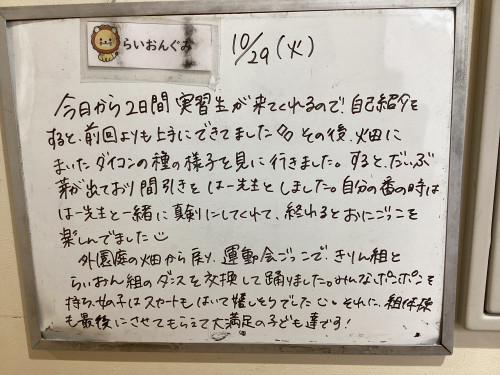 らいおんぐみ
10/29(火)
今日から2日間実習生が来てくれるので、自己紹介を
すると、前回よりも上手にできてました その後、畑に
まいたダイコンの種の様子を見に行きました。すると、だいぶ
芽が出ており間引きをはー先生としました。自分の番の時は
はー先生と一緒に真剣にしてくれて、終わるとおにごっこを
楽しんでました
外園庭の畑から戻り、運動会ごっこで、きりん組と
らいおん組のダンスを交換して踊りました。みんなポンポンを
持ち、女の子はスカートもはいて嬉しそうでした。それに、組体操
も最後にさせてもらえて大満足の子ども達です!